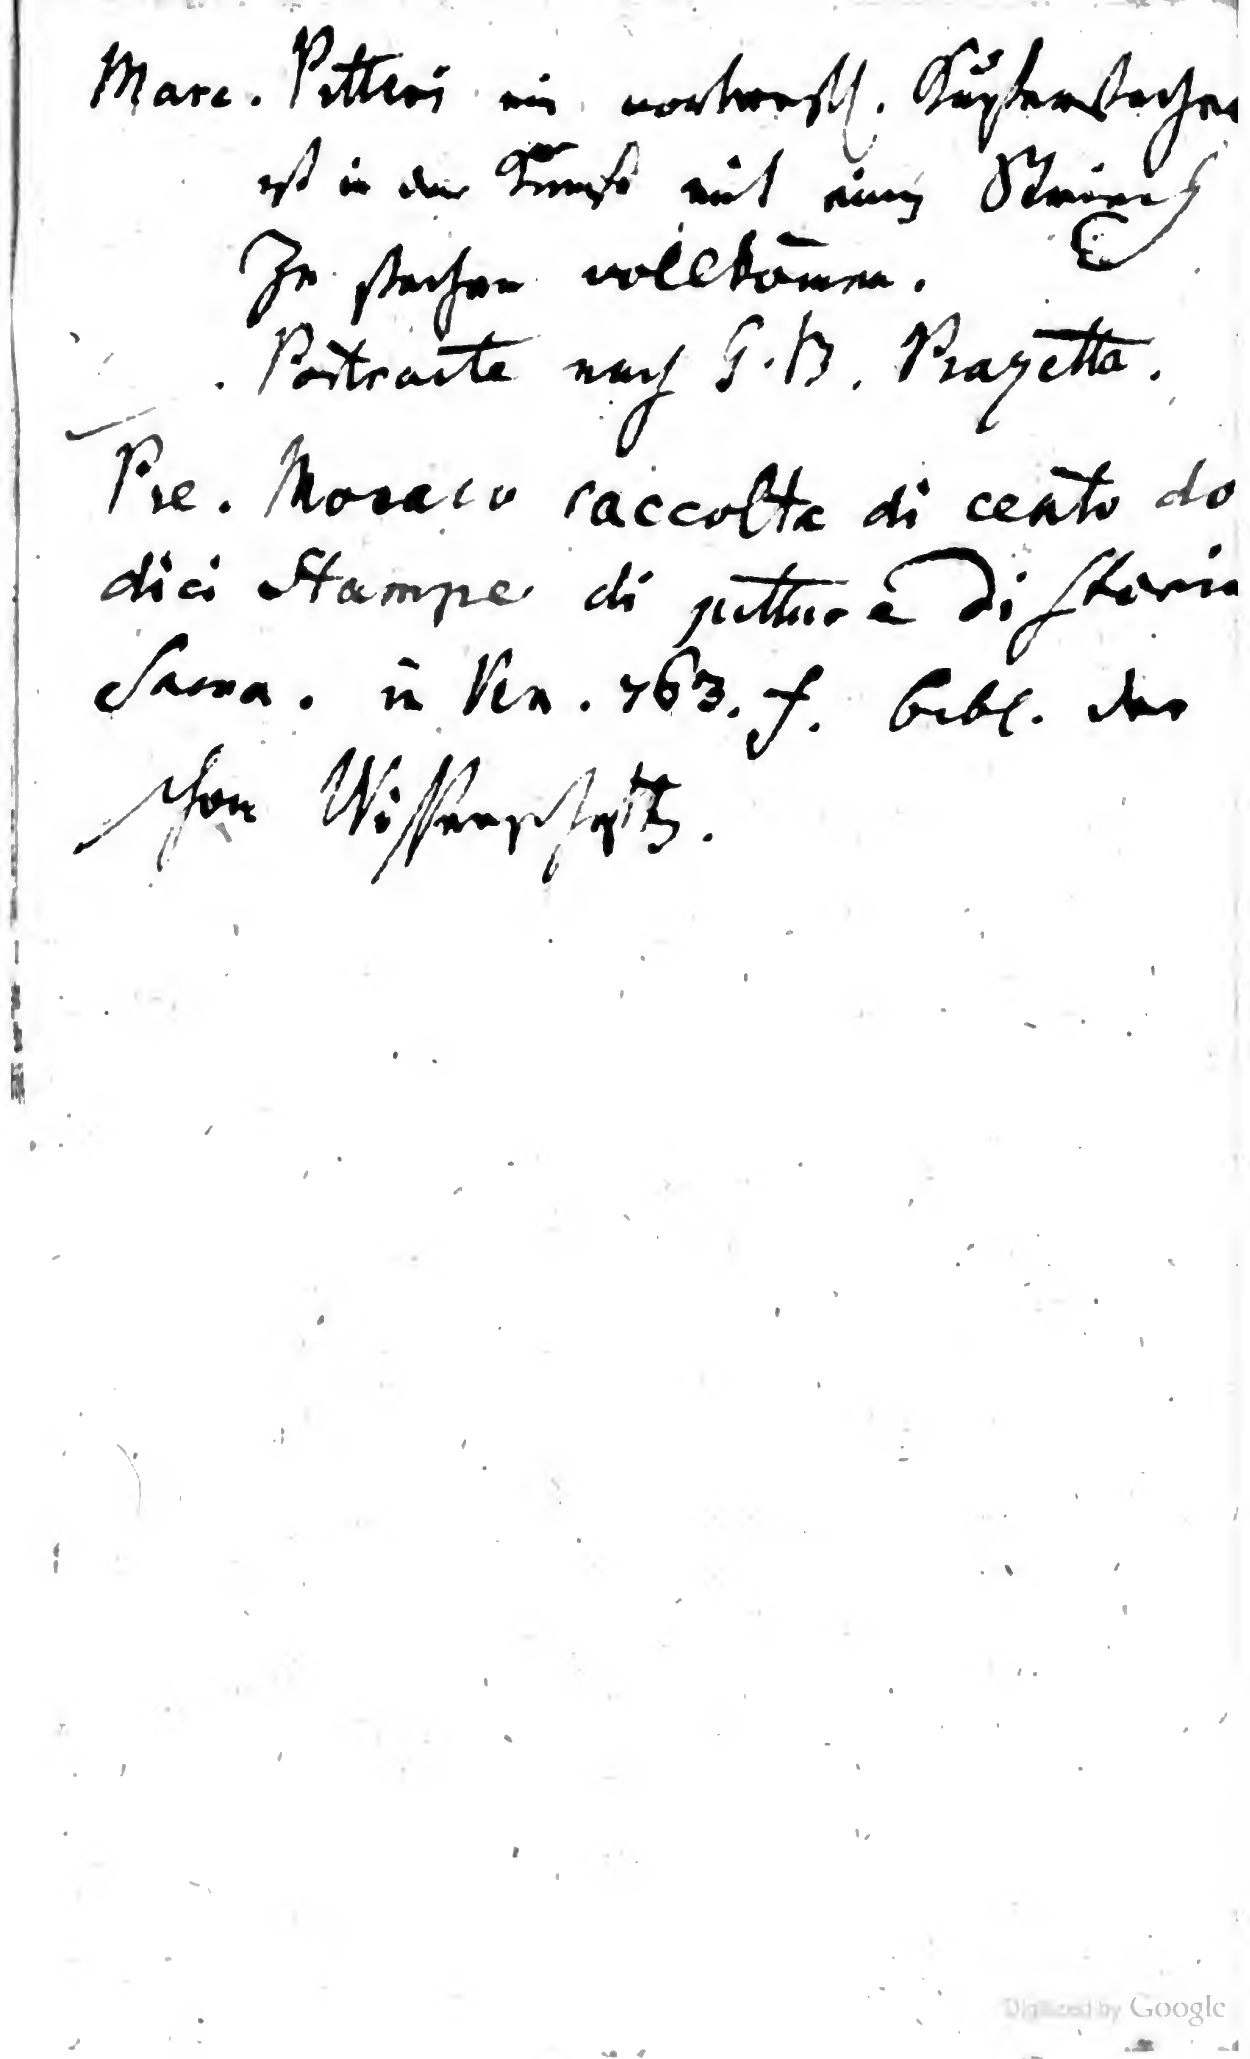 Marc. Pitteri ein vortreffl. Kupferstecher
ist in der Kunst mit einem Strich
zu stechen vollkom̄en.
Portraite nach G. B. Piazetta.
Pie. Monaco raccolta di cento do
dici Stampe di pitture di Storia
Sacra. in Ven. 763. f. Bibl. der
schön Wissenschafft.
Digitized by Google